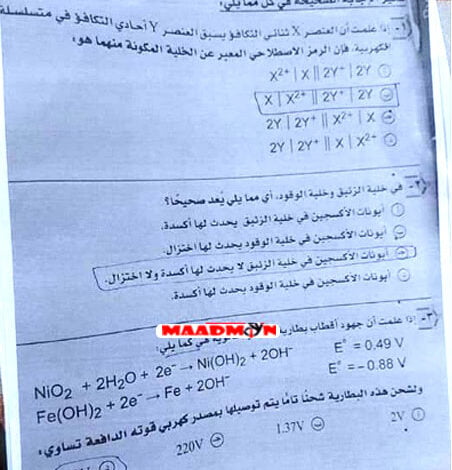 الإجابة الصحيحة في كل مما يلي:
١- إذا علمت أن العنصر X ثنائي التكافؤ يسبق العنصر Y أحادي التكافؤ في متسلسلة
الكهربية، فإن الرمز الاصطلاحي المعبر عن الخلية المكونة منهما هو:
أ X²⁺ | X || 2Y⁺ | 2Y
ب X | X²⁺ || 2Y⁺ | 2Y
ج 2Y | 2Y⁺ || X²⁺ | X
د 2Y | 2Y⁺ || X | X²⁺
٢- في خلية الزئبق وخلية الوقود، أي مما يلي يُعد صحيحًا؟
أ أيونات الأكسجين في خلية الزئبق يحدث لها أكسدة.
ب أيونات الأكسجين في خلية الوقود يحدث لها اختزال.
ج أيونات الأكسجين في خلية الزئبق لا يحدث لها أكسدة ولا اختزال.
د أيونات الأكسجين في خلية الوقود يحدث لها أكسدة.
٣- إذا علمت أن جهود أقطاب بطارية كما يلي:
MAADMOYN
NiO₂ + 2H₂O + 2e⁻ → Ni(OH)₂ + 2OH⁻ E° = 0.49 V
Fe(OH)₂ + 2e⁻ → Fe + 2OH⁻ E° = -0.88 V
ولشحن هذه البطارية شحنًا تامًا يتم توصيلها بمصدر كهربي قوته الدافعة تساوي:
أ 2V ب 1.37V ج 220V